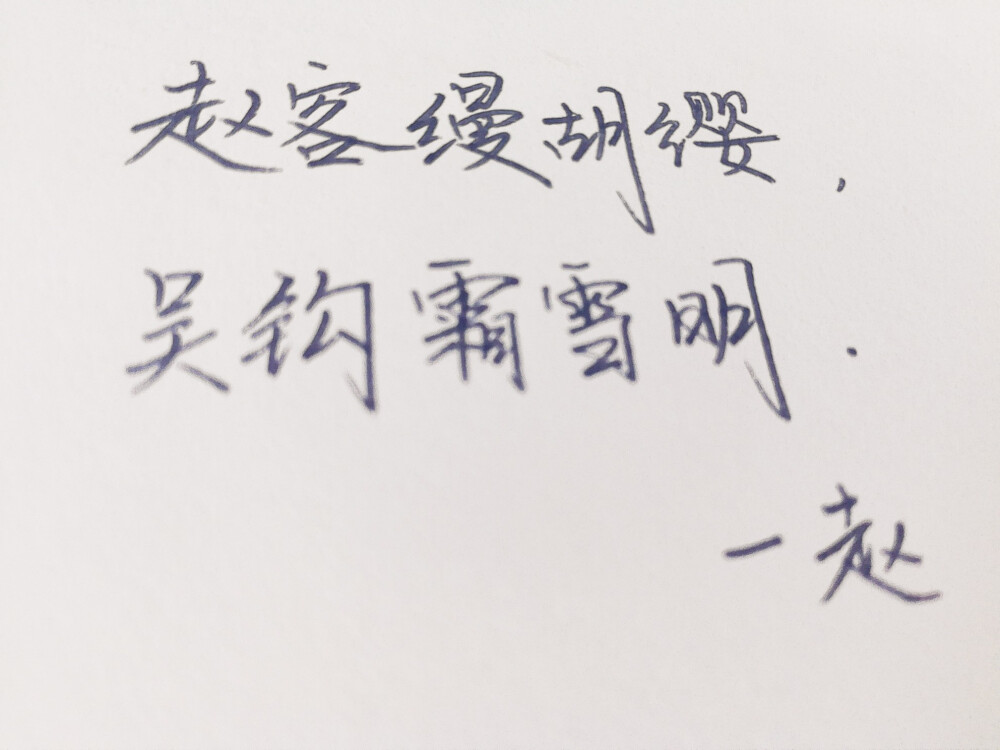 赵客缦胡缨，
吴钩霜雪明.
一赵